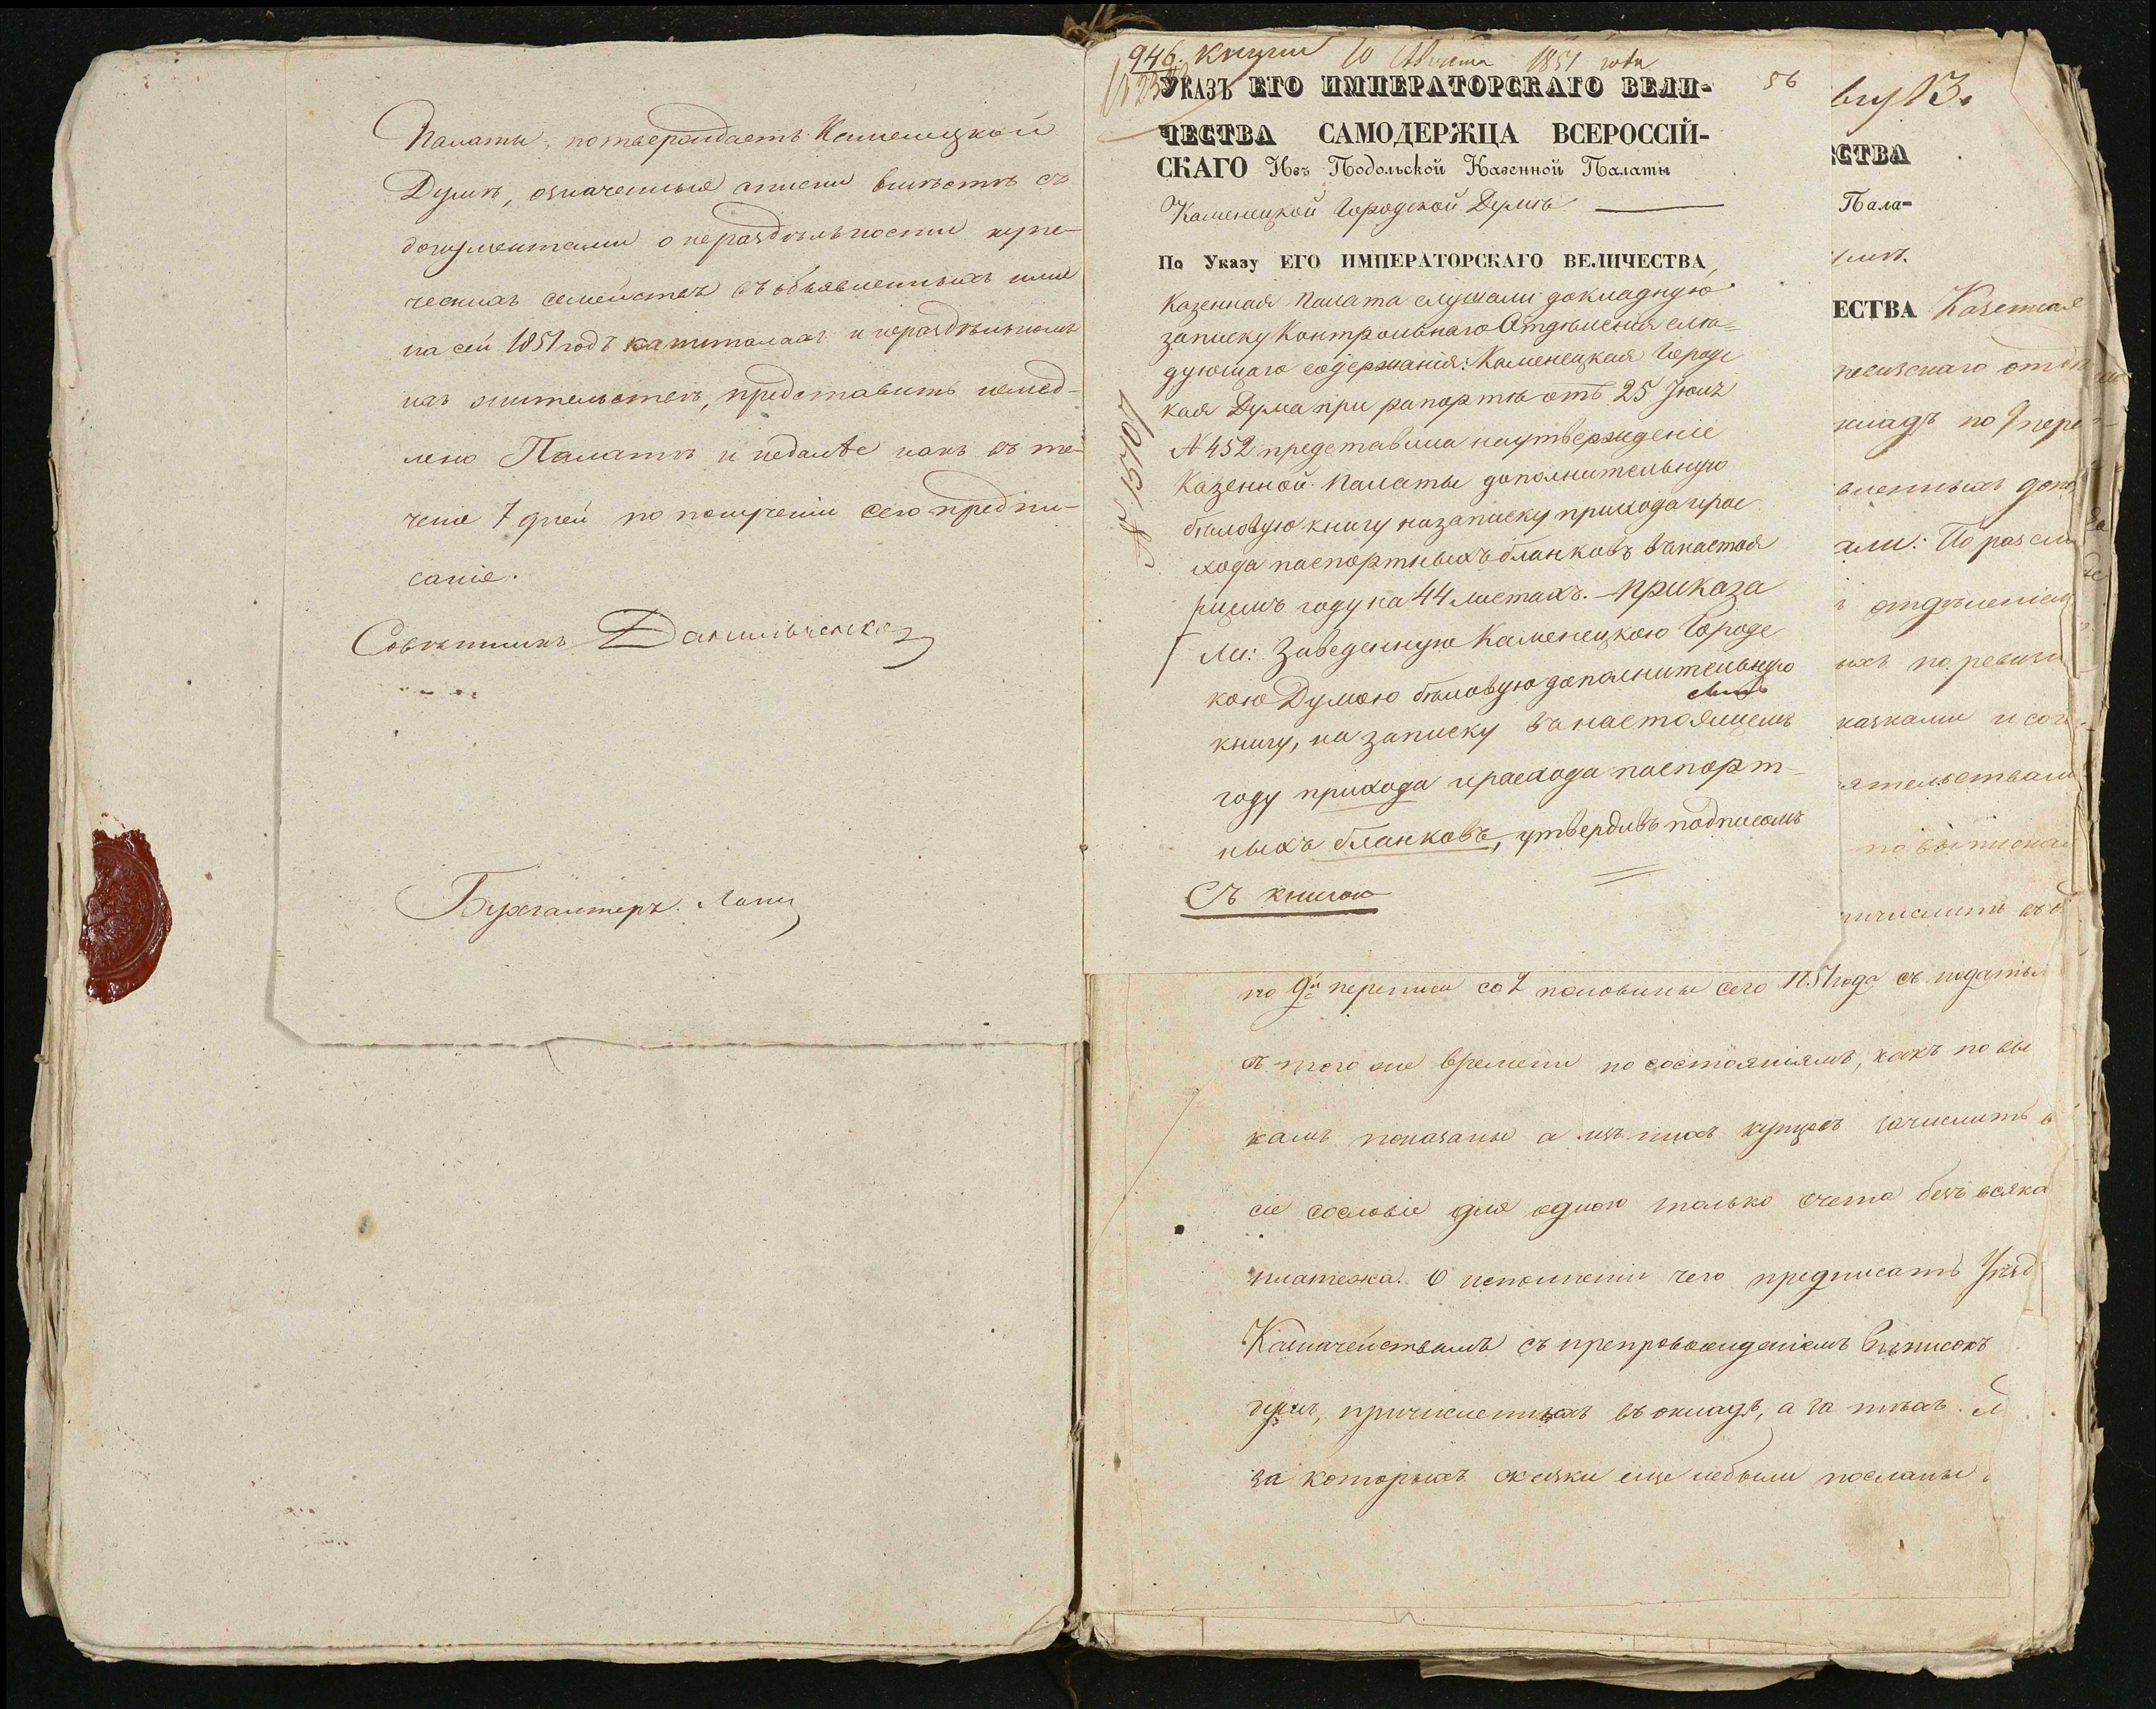 Палаты, потверждаетъ Каменецкой
Думѣ, означенныя списки вмѣстѣ съ
документами о нераздѣльности купе-
ческихъ семействъ въ объявленныхъ ими
на сей 1851 годъ капиталахъ и нераздѣльном
ихъ жительствѣ, представить немед-
лено Палатѣ и недалѣе какъ въ те-
ченіе 7 дней по полученіи сего предпи-
санія.
Совѣтникъ Данильченко
Бухгалтеръ
946. книги 10 Августа 1851 года
56
УКАЗЪ ЕГО ИМПЕРАТОРСКАГО ВЕЛИ-
ЧЕСТВА САМОДЕРЖЦА ВСЕРОССІЙ-
СКАГО Изъ Подольской Казенной Палаты
Каменецкой Городской Думѣ
По Указу ЕГО ИМПЕРАТОРСКАГО ВЕЛИЧЕСТВА,
Казенная Палата слушали докладную
записку Контрольнаго Отдѣленія слѣ=
дующаго содержанія: Каменецкая Городс
кая Дума при рапортѣ отъ 25 Іюля
№ 452 представила на утвержденіе
Казенной Палаты дополнительную
бѣловую книгу на записку прихода и рас
хода паспортныхъ бланковъ въ настоя
щемъ году на 44 листахъ. – Приказа
ли: Заведенную Каменецкою Городс
кою Думою бѣловую дополнительную
книгу, на записку въ настоящемъ
году прихода и расхода паспорт-
ныхъ бланковъ, утвердивъ подписомъ
Съ книгою
СТВА
Пала-
ЕСТВА Казенная
кладъ по 9 пере
али: По разсм
отдѣленіем
ыхъ по ревизи
казками и со
ятельствам
по выпискам
по 9й переписи со 2 половины сего 1851 года съ податьм
съ того же времени по состояніямъ, какъ по вы
камъ показаны а изъ нихъ купцовъ зачислить в
сіе сословіе для одного только счета безъ всяка
платежа. О исполненіи чего предписать Уѣзд
Казначействамъ съ препровожденіемъ Выписокъ
душъ, причисленныхъ въ окладъ, а за тѣхъ
за которыхъ сказки еще небыли посланы